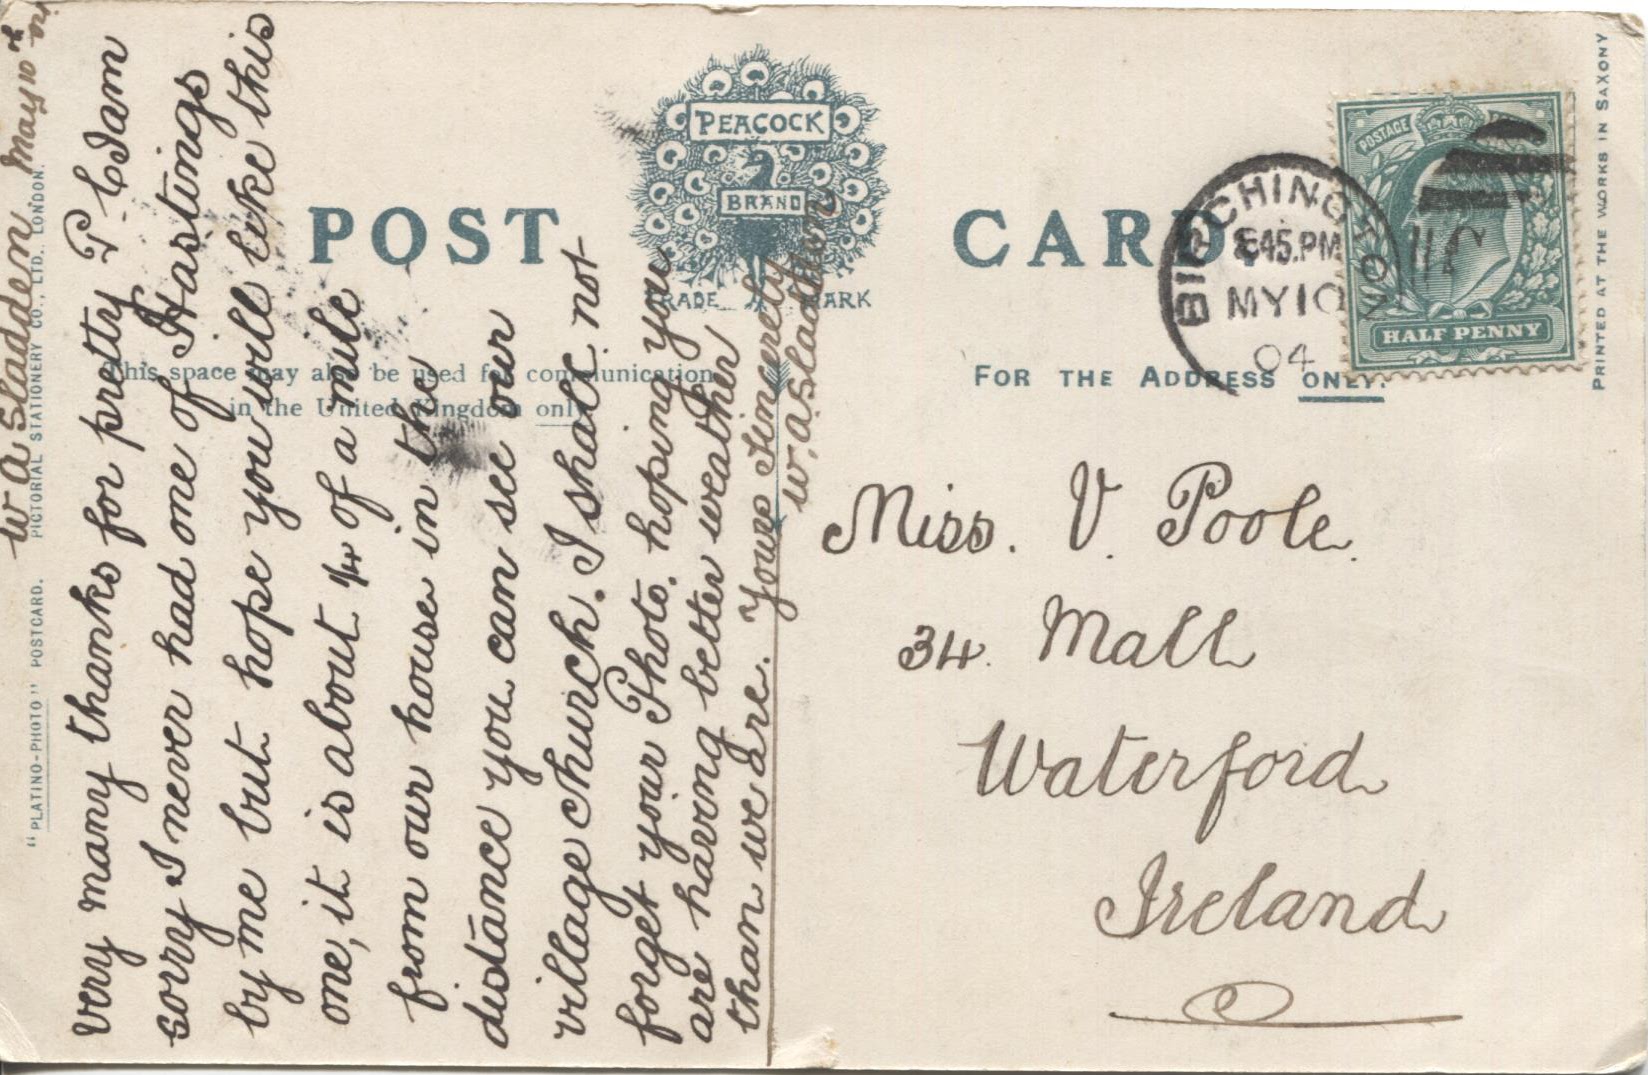 W A Sladden. May 10th
"PLATINO-PHOTO" POSTCARD. PICTORIAL STATIONERY CO., LTD., LONDON.
Very many thanks for pretty P. C. Iam
sorry I never had one of Hastings
by me but hope you will like this
one, it is about 1/4 of a mile
from our house in the
distance you can see our
village Church. I shall not
forget your Photo. hoping you
are having better weather
than we are. Yours Sincerely
W. A Sladden
POST CARD
PEACOCK
BRAND
TRADE MARK
This space may also be used for communication
in the United Kingdom only
FOR THE ADDRESS ONLY.
BIRCHINGTON
8.45.PM
MY 10
04
POSTAGE
HALF PENNY
Miss. V. Poole.
34. Mall
Waterford
Ireland
PRINTED AT THE WORKS IN SAXONY